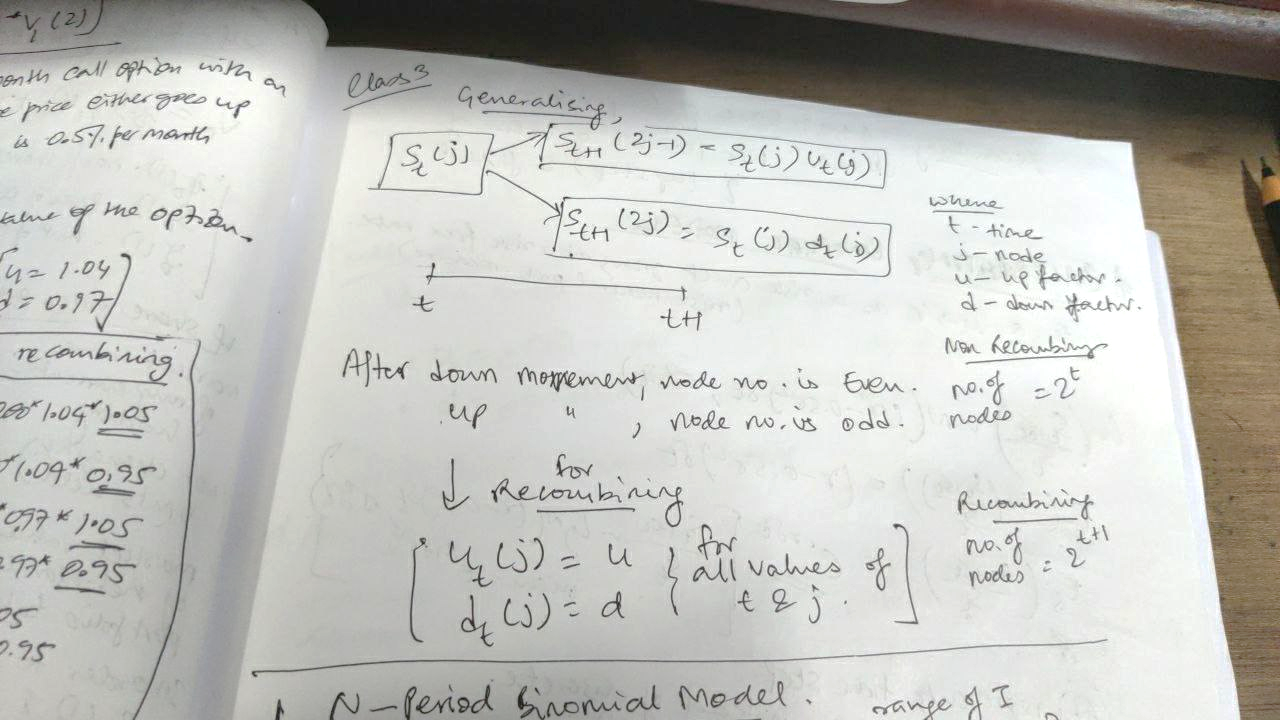 *V₁(2))
onth call option with an
e price either goes up
is 0.5% per month
value of the option.
u = 1.04
d = 0.97
recombining.
200*1.04*1.05
*1.04*0.95
*0.97*1.05
.97*0.95
05
0.95
Class 3
Generalising,
S_t(j)
S_{t+1}(2j-1) = S_t(j) u_t(j)
S_{t+1}(2j) = S_t(j) d_t(j)
t
t+1
where
t - time
j - node
u - up factor.
d - down factor.
After down movement, node no. is Even.
up " , node no. is odd.
Non Recombining
no. of nodes = 2^t
↓ for Recombining
u_t(j) = u
d_t(j) = d
for all values of
t & j.
Recombining
no. of nodes = 2^{t+1}
N-Period Binomial Model.
range of I